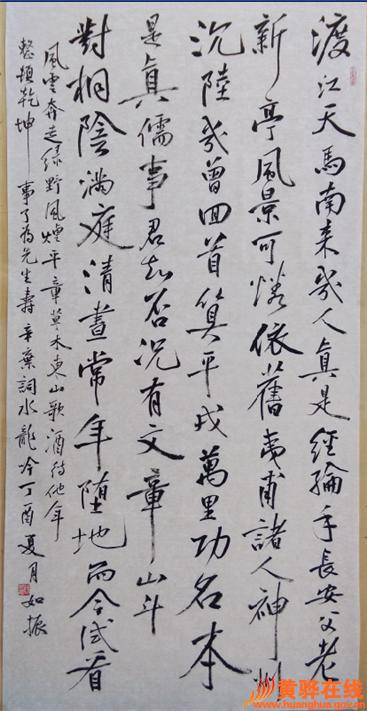 渡江天馬南来幾人真是經綸手長安父老
新亭風景可憐依舊夷甫諸人神州
沉陸幾曾回首算平戎萬里功名本
是真儒事君知否況有文章山斗
對桐陰滿庭清晝當年墮地而今試看
風雲奔走綠野風煙平章草木東山歌酒待他年
整頓乾坤 事了為先生壽 辛棄詞水龍吟 丁酉夏月 如振
黄骅在线
www.huanghua.gov.cn